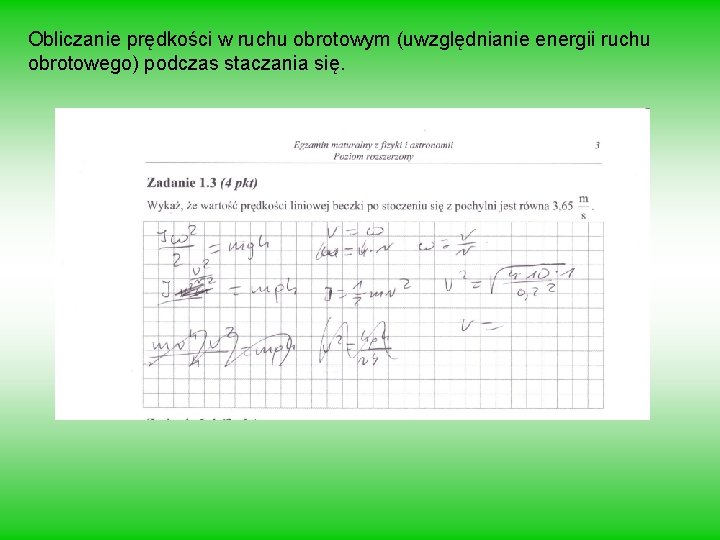 Obliczanie prędkości w ruchu obrotowym (uwzględnianie energii ruchu
obrotowego) podczas staczania się.
Egzamin maturalny z fizyki i astronomii 3
Poziom rozszerzony
Zadanie 1.3 (4 pkt)
Wykaż, że wartość prędkości liniowej beczki po stoczeniu się z pochylni jest równa 3,65 m/s.
Jω²/2 = mgh
v = ω
ω = v/r
= mgh
J = 1/2 mr²
v² = √(4·10·1/0,22)
v =